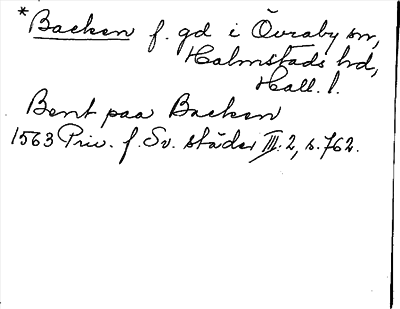 *Backen f. gd i Övraby sn,
Halmstads hd,
Hall. l.
Bent paa Backen
1563 Priv. f. Sv. städer III. 2, s. 762.